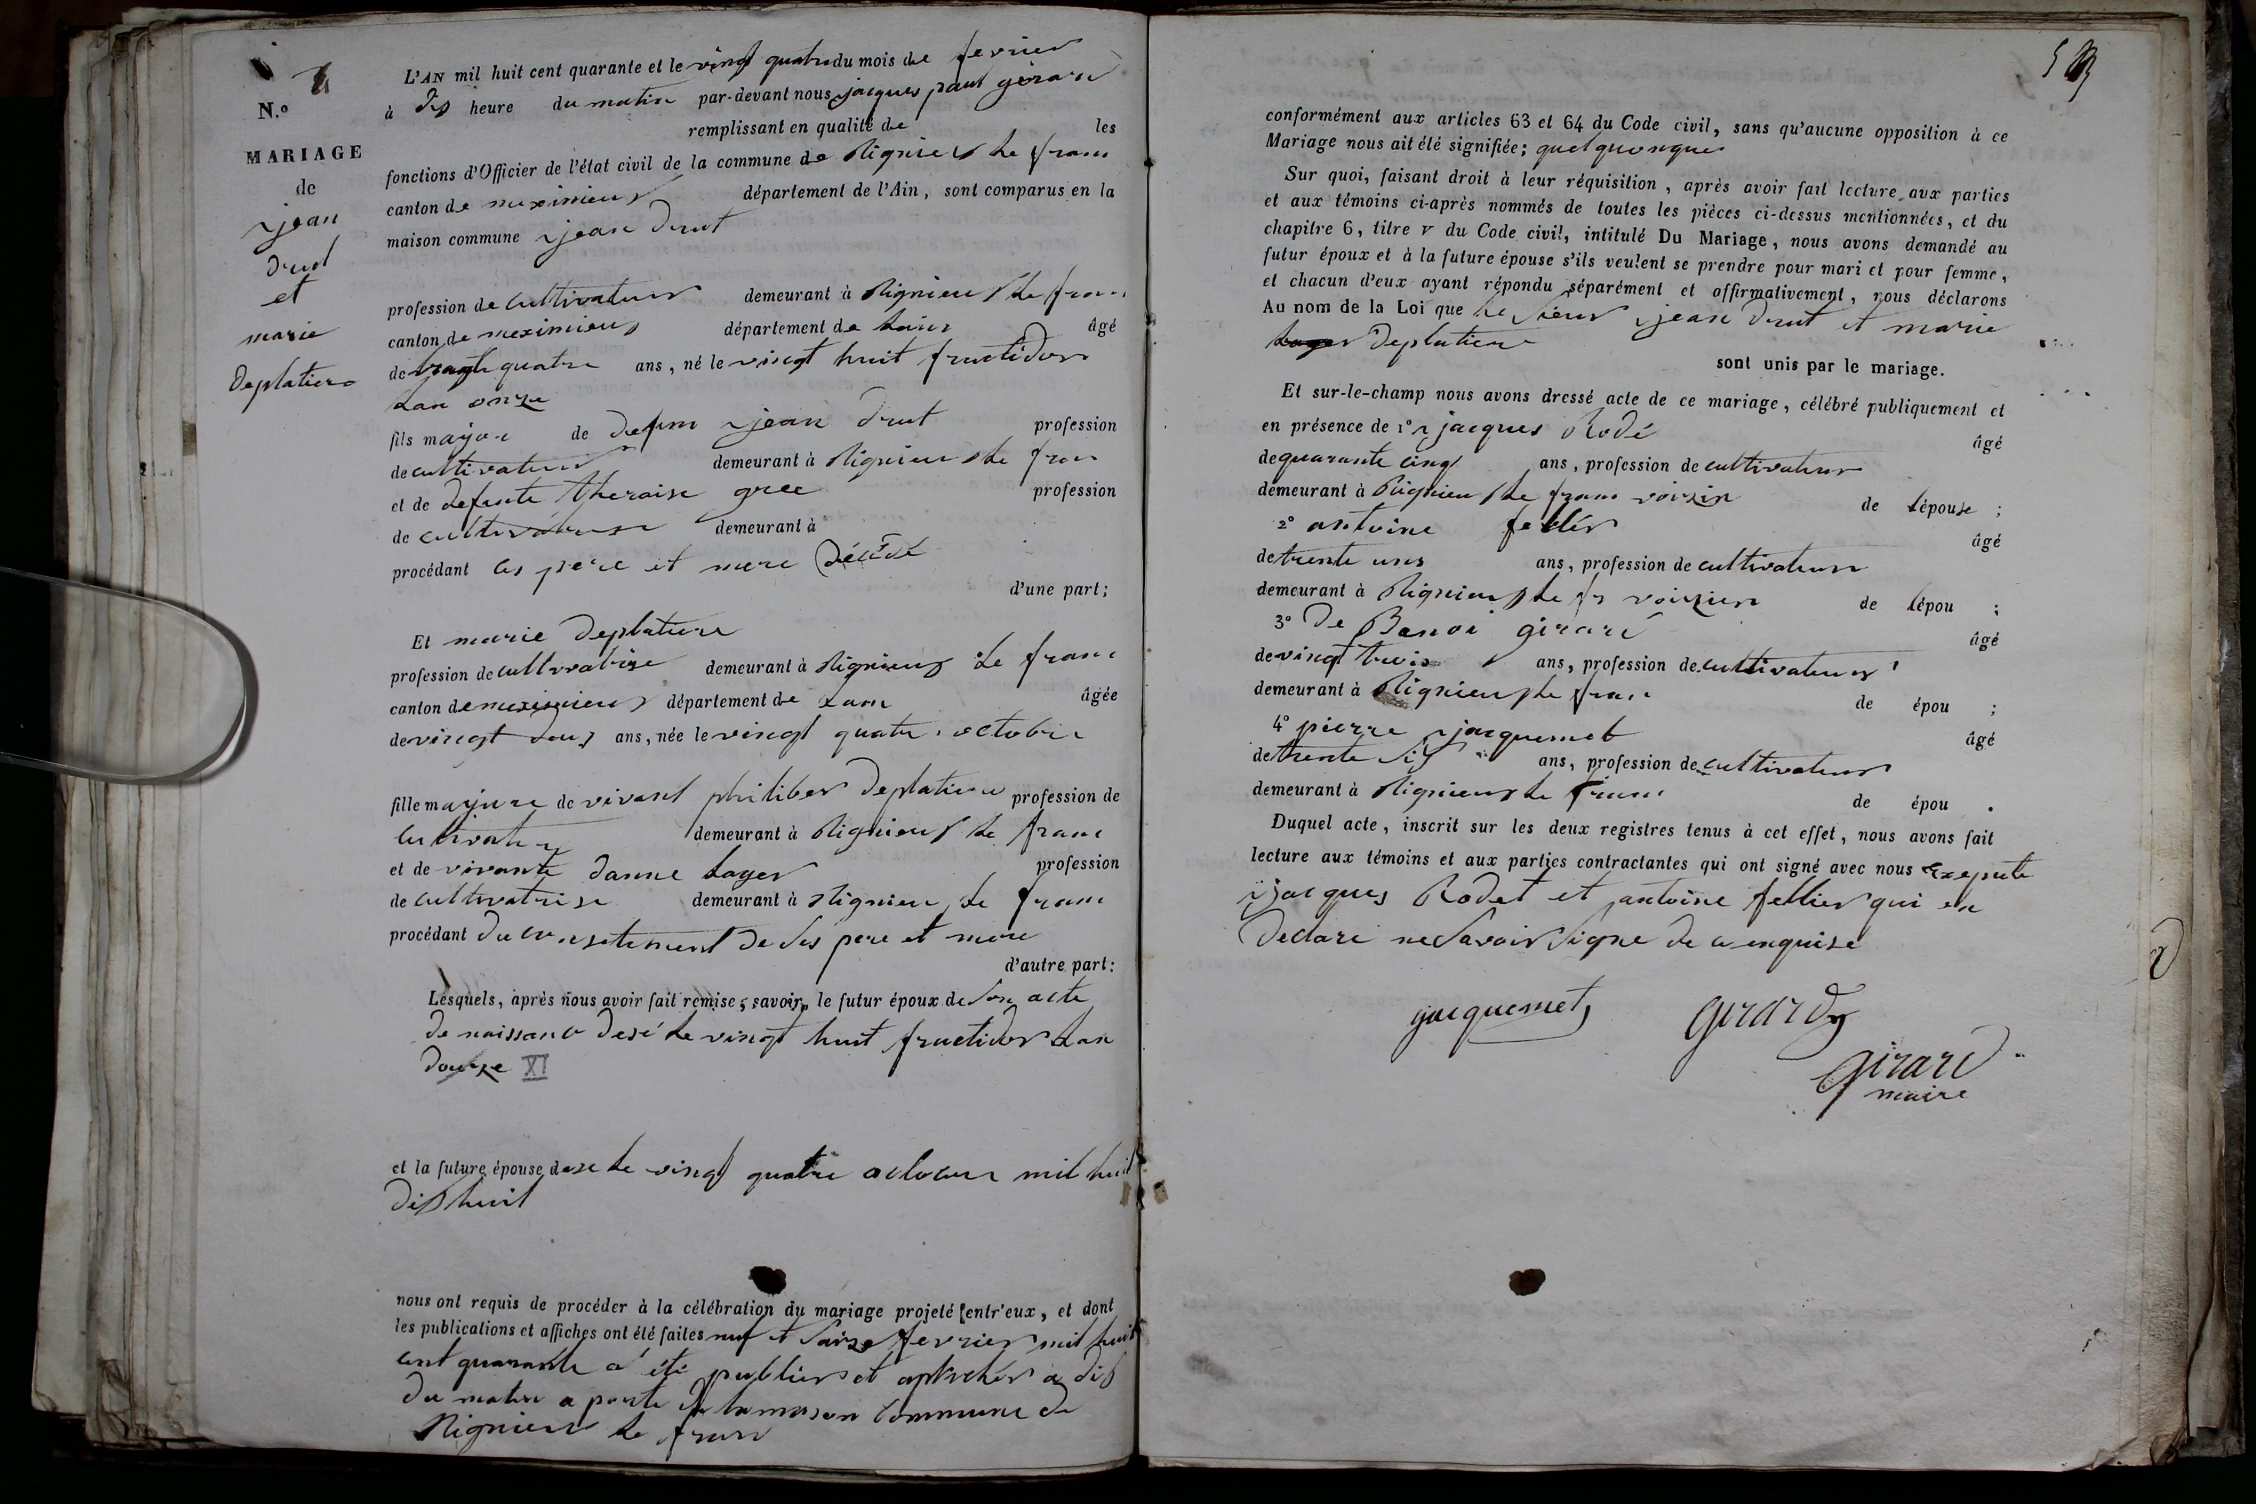 N.º
MARIAGE
de
jean
drut
et
marie
deplatiere
L'AN mil huit cent quarante et le vingt quatre du mois de fevrier
à dis heure du matin par-devant nous jacques paul girard
remplissant en qualité de les
fonctions d'Officier de l'état civil de la commune de Rignieux le franc
canton de meximieux département de l'Ain, sont comparus en la
maison commune jean drut
profession de cultivateur demeurant à Rignieux le franc
canton de meximieux département de lain âgé
de quatre ans, né le vingt huit fructidor
lan onze
fils majore de defun jean drut profession
de cultivateur demeurant à Rignieux le fran
et de defunte theraise gree profession
de cultivatrise demeurant à
procédant les pere et mere décédé
d'une part;
Et marie deplatiere
profession de cultivatrise demeurant à Rignieux le franc
canton de meximieux département de Lain âgée
de vingt deux ans, née le vingt quatre octobre
fille majeure de vivant philiber deplatiere profession de
cultivateur demeurant à Rignieux le franc
et de vivante danne Loyer profession
de cultivatrise demeurant à Rignieu le franc
procédant du consetement de ses pere et mere
d'autre part:
Lesquels, après nous avoir fait remise, savoir, le futur époux de son acte
de naissance desé le vingt huit fructidor lan
douze XI
et la future épouse dese le vingt quatre octobre mil huit
dis huit
nous ont requis de procéder à la célébration du mariage projeté entr'eux, et dont
les publications et affiches ont été faites neuf et saize fevrier mil huit
cent quarante a été publier et aphichér a dis
du matin a porte de la maison commune de
Rignieux le franc
conformément aux articles 63 et 64 du Code civil, sans qu'aucune opposition à ce
Mariage nous ait été signifiée; quelquonque
Sur quoi, faisant droit à leur réquisition, après avoir fait lecture aux parties
et aux témoins ci-après nommés de toutes les pièces ci-dessus mentionnées, et du
chapitre 6, titre v du Code civil, intitulé Du Mariage, nous avons demandé au
futur époux et à la future épouse s'ils veulent se prendre pour mari et pour femme,
et chacun d'eux ayant répondu séparément et affirmativement, nous déclarons
Au nom de la Loi que le sieur jean drut et marie
Loyer deplatiere
sont unis par le mariage.
Et sur-le-champ nous avons dressé acte de ce mariage, célébré publiquement et
en présence de 1º jacques Rodé âgé
de quarante cinq ans, profession de cultivateur
demeurant à Rignieu le franc voizin de lépouse;
2º antoine fellier âgé
de trente uns ans, profession de cultivateur
demeurant à Rignieux le fr voizien de lépou;
3º De Benoi girard âgé
de vingt trois ans, profession de cultivateur
demeurant à Rignieux le franc de épou;
4º pierre jacquemet âgé
de trente sis ans, profession de cultivateur
demeurant à Rignieux le franc de épou.
Duquel acte, inscrit sur les deux registres tenus à cet effet, nous avons fait
lecture aux témoins et aux parties contractantes qui ont signé avec nous exepute
jacques Rodet et antoine fellier qui en
declaré ne savoir signe de ce enquise
jacquemet girard
girard
maire